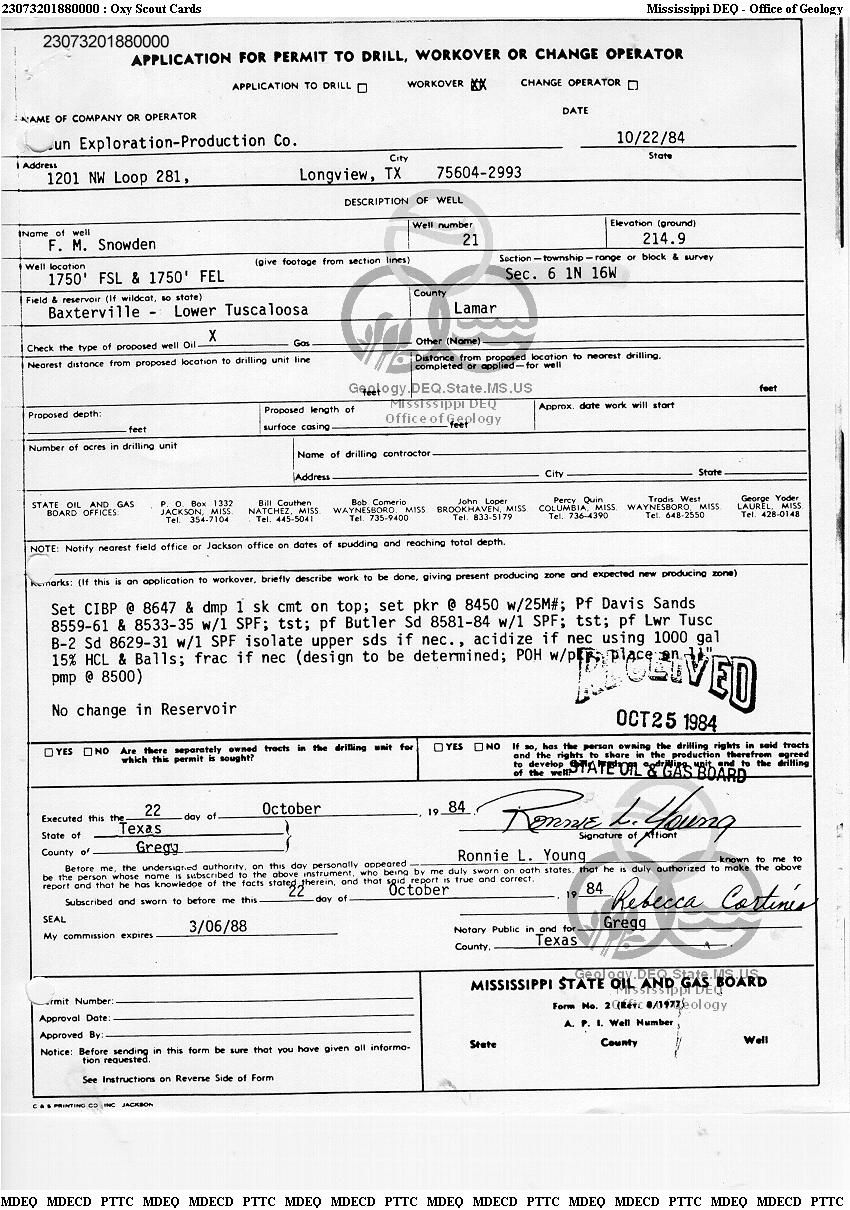 23073201880000 : Oxy Scout Cards Mississippi DEQ - Office of Geology
23073201880000
APPLICATION FOR PERMIT TO DRILL, WORKOVER OR CHANGE OPERATOR
APPLICATION TO DRILL WORKOVER XX CHANGE OPERATOR
NAME OF COMPANY OR OPERATOR DATE
un Exploration-Production Co. 10/22/84
Address City State
1201 NW Loop 281, Longview, TX 75604-2993
DESCRIPTION OF WELL
Name of well Well number Elevation (ground)
F. M. Snowden 21 214.9
Well location (give footage from section lines) Section—township—range or block & survey
1750' FSL & 1750' FEL Sec. 6 1N 16W
Field & reservoir (If wildcat, so state) County
Baxterville - Lower Tuscaloosa Lamar
Check the type of proposed well Oil X Gas Other (Name)
Nearest distance from proposed location to drilling unit line Distance from proposed location to nearest drilling,
completed or applied—for well
feet feet
Geology.DEQ.State.MS.US
Mississippi DEQ
Office of Geology
Proposed depth: Proposed length of Approx. date work will start
feet surface casing feet
Number of acres in drilling unit
Name of drilling contractor
Address City State
STATE OIL AND GAS P. O. Box 1332 Bill Cauthen Bob Comerio John Loper Percy Quin Tradis West George Yoder
BOARD OFFICES JACKSON, MISS. NATCHEZ, MISS. WAYNESBORO, MISS. BROOKHAVEN, MISS. COLUMBIA, MISS. WAYNESBORO, MISS. LAUREL, MISS.
Tel. 354-7104 Tel. 445-5041 Tel. 735-9400 Tel. 833-5179 Tel. 736-4390 Tel. 648-2550 Tel. 428-0148
NOTE: Notify nearest field office or Jackson office on dates of spudding and reaching total depth.
marks: (If this is an application to workover, briefly describe work to be done, giving present producing zone and expected new producing zone)
Set CIBP @ 8647 & dmp 1 sk cmt on top; set pkr @ 8450 w/25M#; Pf Davis Sands
8559-61 & 8533-35 w/1 SPF; tst; pf Butler Sd 8581-84 w/1 SPF; tst; pf Lwr Tusc
B-2 Sd 8629-31 w/1 SPF isolate upper sds if nec., acidize if nec using 1000 gal
15% HCL & Balls; frac if nec (design to be determined; POH w/pkr; place an
pmp @ 8500)
RECEIVED
No change in Reservoir
OCT 25 1984
YES NO Are there separately owned tracts in the drilling unit for which this permit is sought?
YES NO If so, has the person owning the drilling rights in said tracts
and the rights to share in the production therefrom agreed
to develop a drilling unit and to the drilling
of the well?
STATE OIL & GAS BOARD
Executed this the 22 day of October 19 84
Ronnie L. Young
State of Texas Signature of Affiant
County of Gregg
Before me, the undersigned authority, on this day personally appeared Ronnie L. Young known to me to
be the person whose name is subscribed to the above instrument, who being by me duly sworn on oath states, that he is duly authorized to make the above
report and that he has knowledge of the facts stated therein, and that said report is true and correct.
Subscribed and sworn to before me this 22 day of October 19 84
Rebecca Cortines
SEAL Notary Public in and for Gregg
My commission expires 3/06/88 County, Texas
Geology.DEQ.State.MS.US
Mississippi DEQ
Office of Geology
rmit Number:
Approval Date:
Approved By:
Notice: Before sending in this form be sure that you have given all informa-
tion requested.
See Instructions on Reverse Side of Form
MISSISSIPPI STATE OIL AND GAS BOARD
Form No. 2 (Rev. 8/1977)
A. P. I. Well Number
State County Well
C & S PRINTING CO., INC JACKSON
MDEQ MDECD PTTC MDEQ MDECD PTTC MDEQ MDECD PTTC MDEQ MDECD PTTC MDEQ MDECD PTTC MDEQ MDECD PTTC